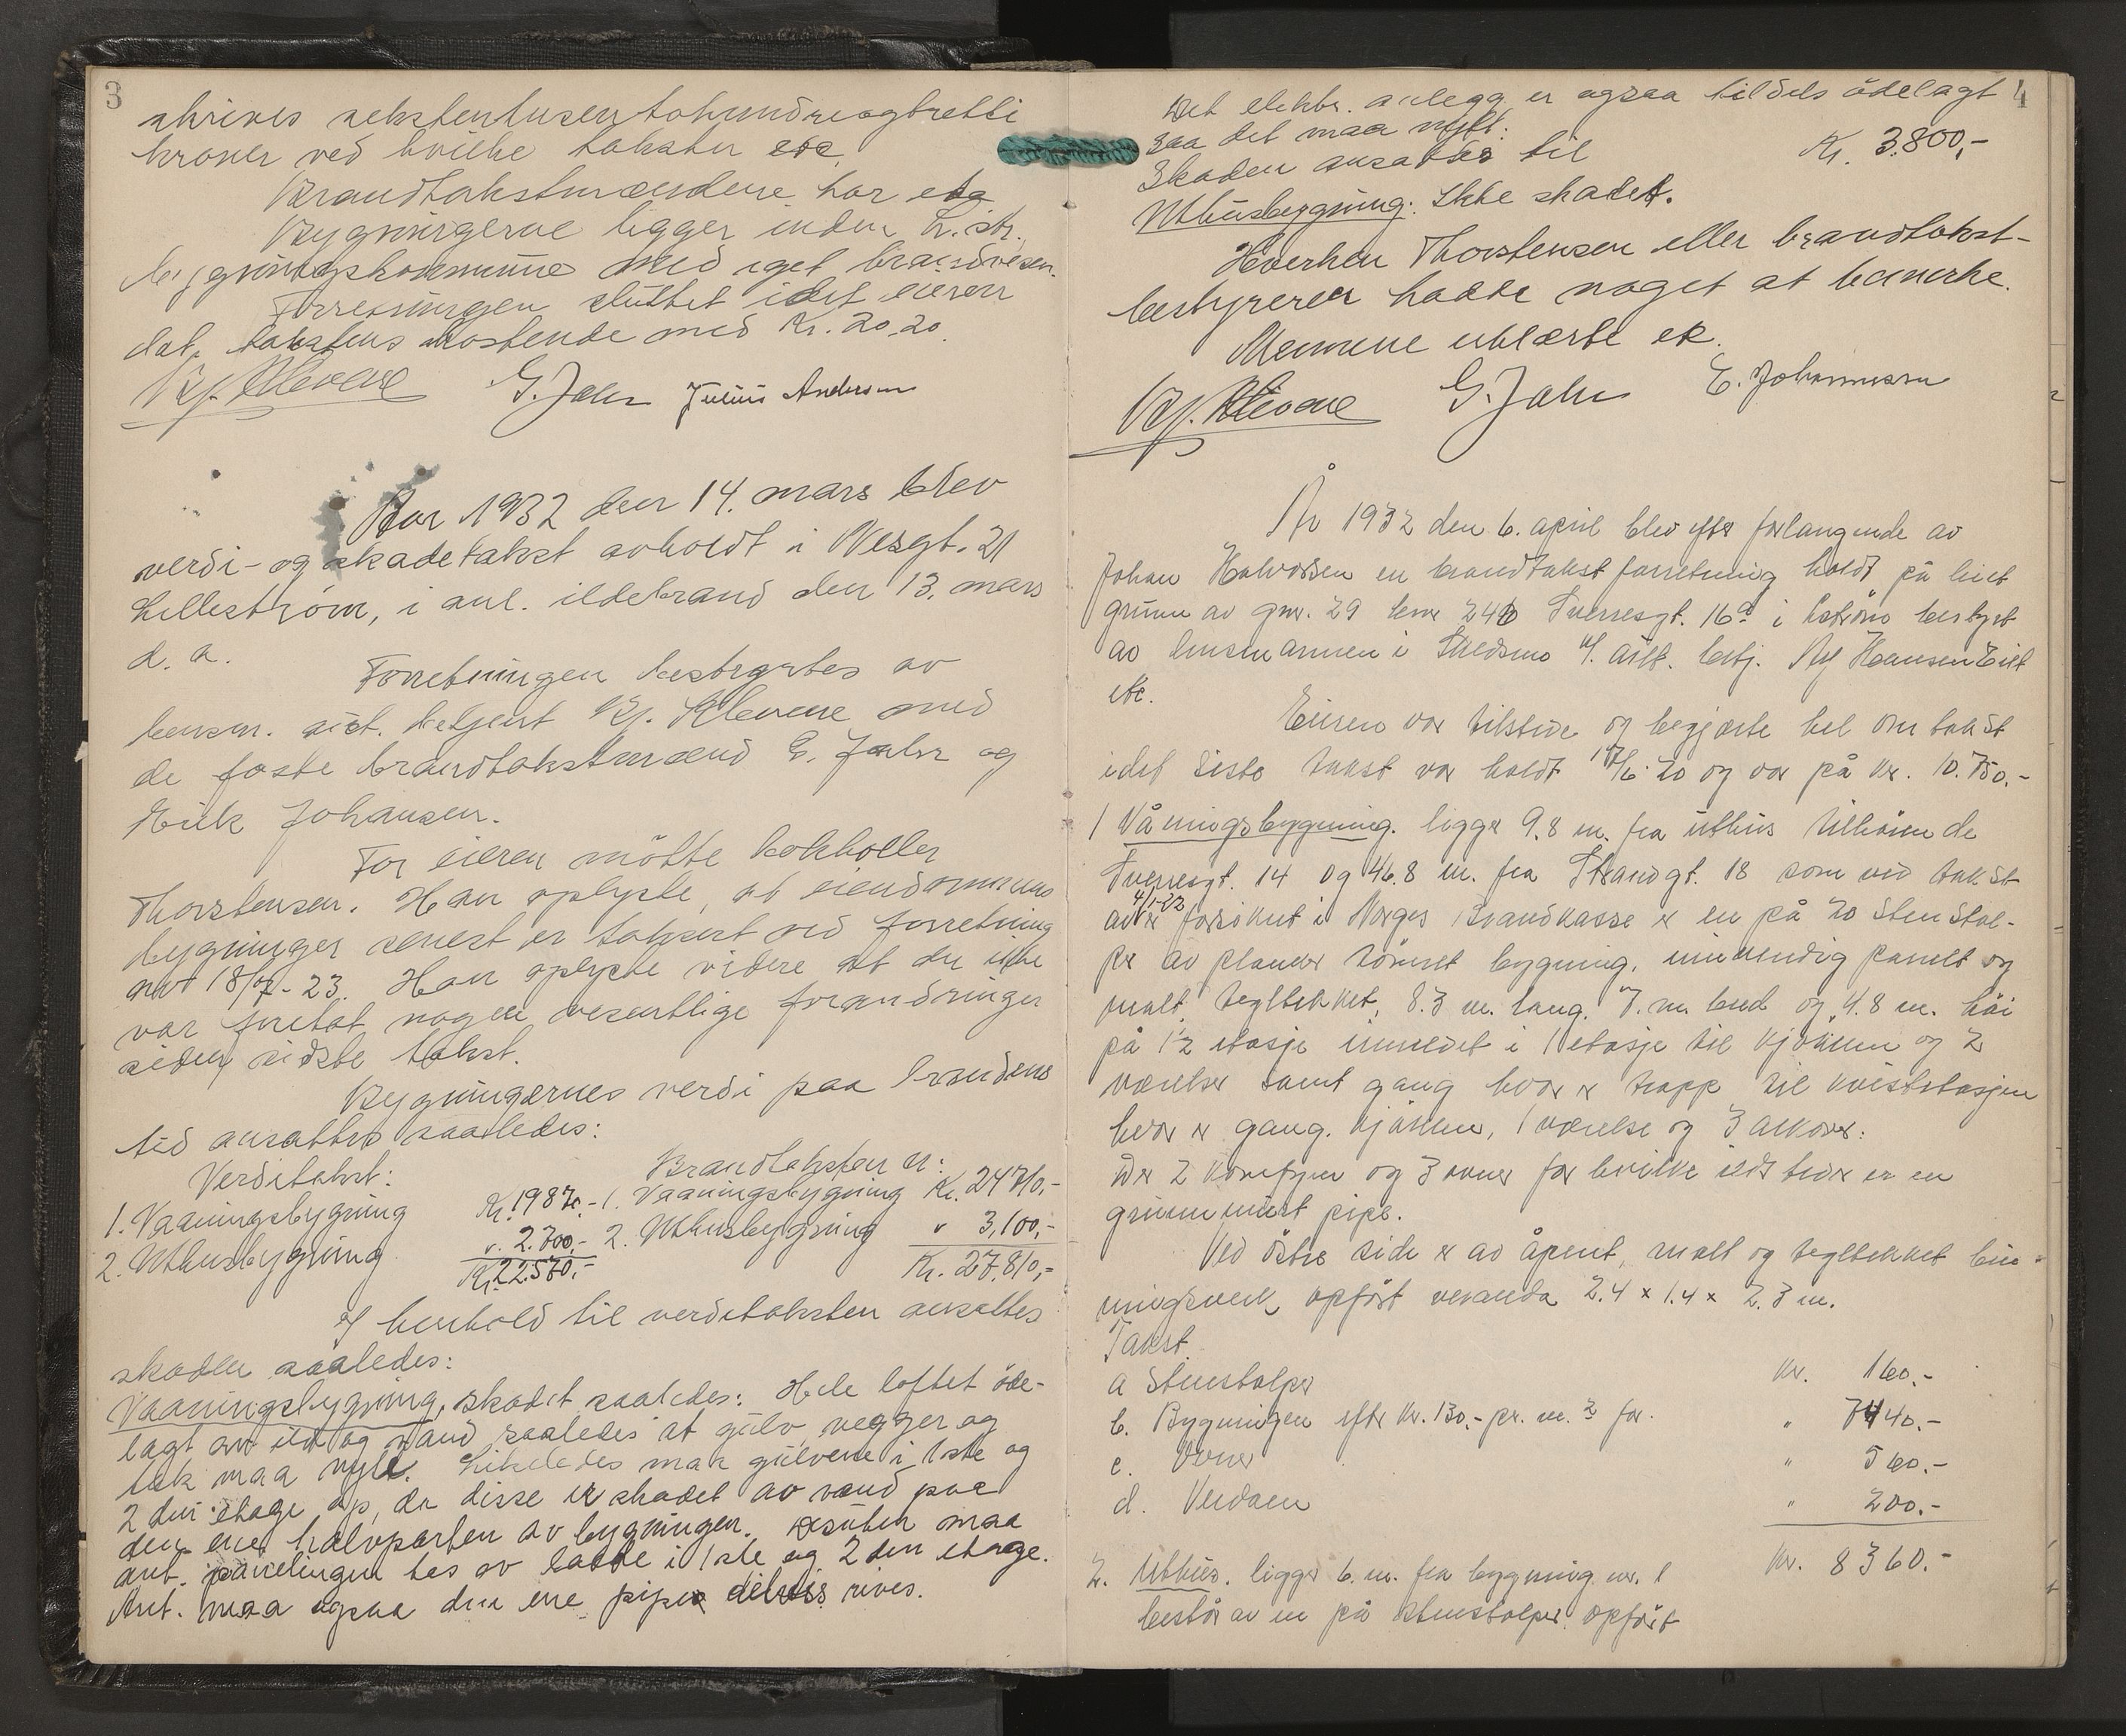 3
skrives sekstentusentohundreogtretti
kroner ved hvilke takster etc.
Brandtakstmændene har etc
Bygningerne ligger inden L.str.
bygningskommune med eget brandvesen.
Forretningen sluttet idet eieren
takstens kostende med Kr. 20.20.
Kr. Klevene G. Jahr Julius Andersen
Aar 1932 den 14. mars blev
verdi- og skadetakst avholdt i Nesgt. 21
Lilleström, i anl. ildebrand den 13. mars
d. a.
Forretningen bestyrtes av
lensm. aist. betjent Kr. Klevene med
de faste brandtakstmænd G. Jahr og
Erik Johansen.
For eieren mötte
Thorstensen. Han oplyste, at eiendommens
bygninger senest er taksert ved forretning
avh 18/7-23. Han oplyste videre at der ikke
var foretat nogen vesentlige forandringer
siden sidste takst.
Bygningernes verdi paa brandens
tid ansattes saaledes:
Verditakst: Brandtaksten er:
1. Vaaningsbygning Kr. 19870.- 1. Vaaningsbygning Kr. 24710,-
2. Uthusbygning " 2.700,- 2. Uthusbygning " 3,100,-
Kr. 22.570,- Kr. 27.810,-
I henhold til verditaksten ansattes
skaden saaledes:
Vaaningsbygning, skadet saaledes: Hele loftet öde-
lagt av ild og vand saaledes at gulv, vegger og
tak maa nyt. Likeledes maa gulvene i 1ste og
2 den etage op, da disse er skadet av vand paa
den ene halvparten av bygningen. Desuten maa
ant. panelingen tas av i 1ste og 2den etage.
Ant. maa ogsaa den ene pipe delvis rives.
4
Det elektr. anlegg er ogsaa tildels ödelagt
saa det maa nytt.
Skaden ansattes til Kr. 3.800,-
Uthusbygning: Ikke skadet.
Hverken Thorstensen eller brandtakst-
bestyreren hadde noget at bemerke.
Mennene utlærte ek.
Kr. Klevene G. Jahr E. Johannessen
År 1932 den 6. april blev efter forlangende av
Johan Halvorsen en brandtakst forretning holdt på hans
grunn av gnr. 29 bnr 246 Sverresgt. 16a i L.ström bestyrt
av lensmannen i Skedsmo v/ aist. betj. Hansen
etc.
Eieren var tilstede og begjærte hel om takst
idet siste takst var holdt 17/6-20 og var på kr. 10.750.-
1 Våningsbygning. ligger 9.8 m. fra uthus tilhörende
Sverresgt. 14 og 46.8 m. fra Strandgt. 18 som ved takst
av 4/1-22 er forsikret i Norges Brandkasse er en på 20 Sten Stol-
per av planker tömret bygning. innvendig panelt og
malt. tegltekket, 8.3 m. lang. 7. m. bred og 4.8 m. höi
på 1½ etasje innredet i 1 etasje til kjökken og 2
værelser samt gang hvor er trapp til kvistetasjen
hvor er gang. kjökken, 1 værelse og 3 alkover.
Der 2 komfyrer og 3 ovner for hvilke ildsteder er en
grunnmuret pipe.
Ved östre side er av åpent, malt og tegltekket bin-
ningsverk opfört veranda 2.4 × 1.4 × 2.3 m.
Takst.
a Stenstolper kr. 160.-
b. Bygningen efter kr. 130.- pr. m. 2 for. " 7440.-
c. Ovner " 560.-
d. Verdaen " 200.-
kr. 8360.-
2. Uthus. ligger 6. m. fra bygning nr. 1
består av en på stenstolper opfört